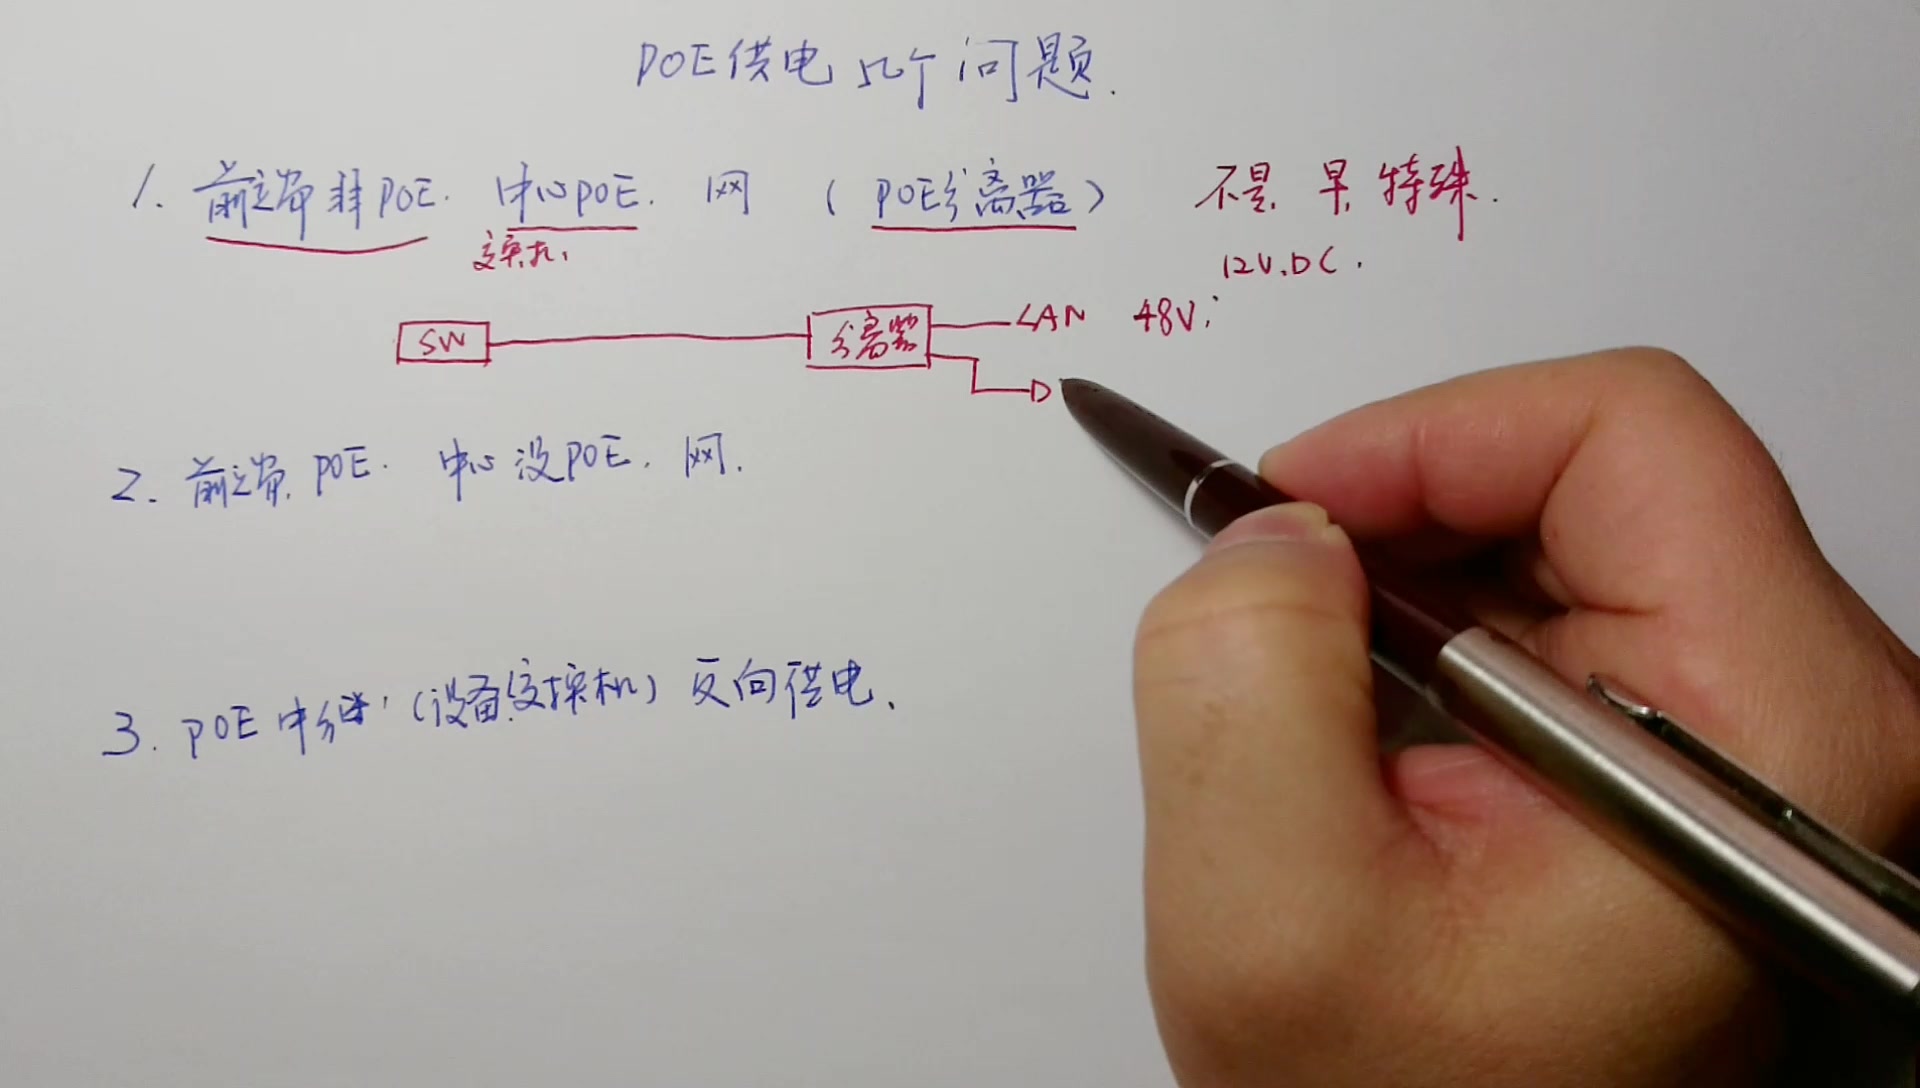 POE供电几个问题.
1. 前端非POE. 中心POE. 网 (POE分离器) 不是 早 特殊.
交换机, 12V.DC.
SW 分离器 LAN 48V;
D
2. 前端 POE. 中心没POE. 网.
3. POE中继 (设备交换机) 反向供电.